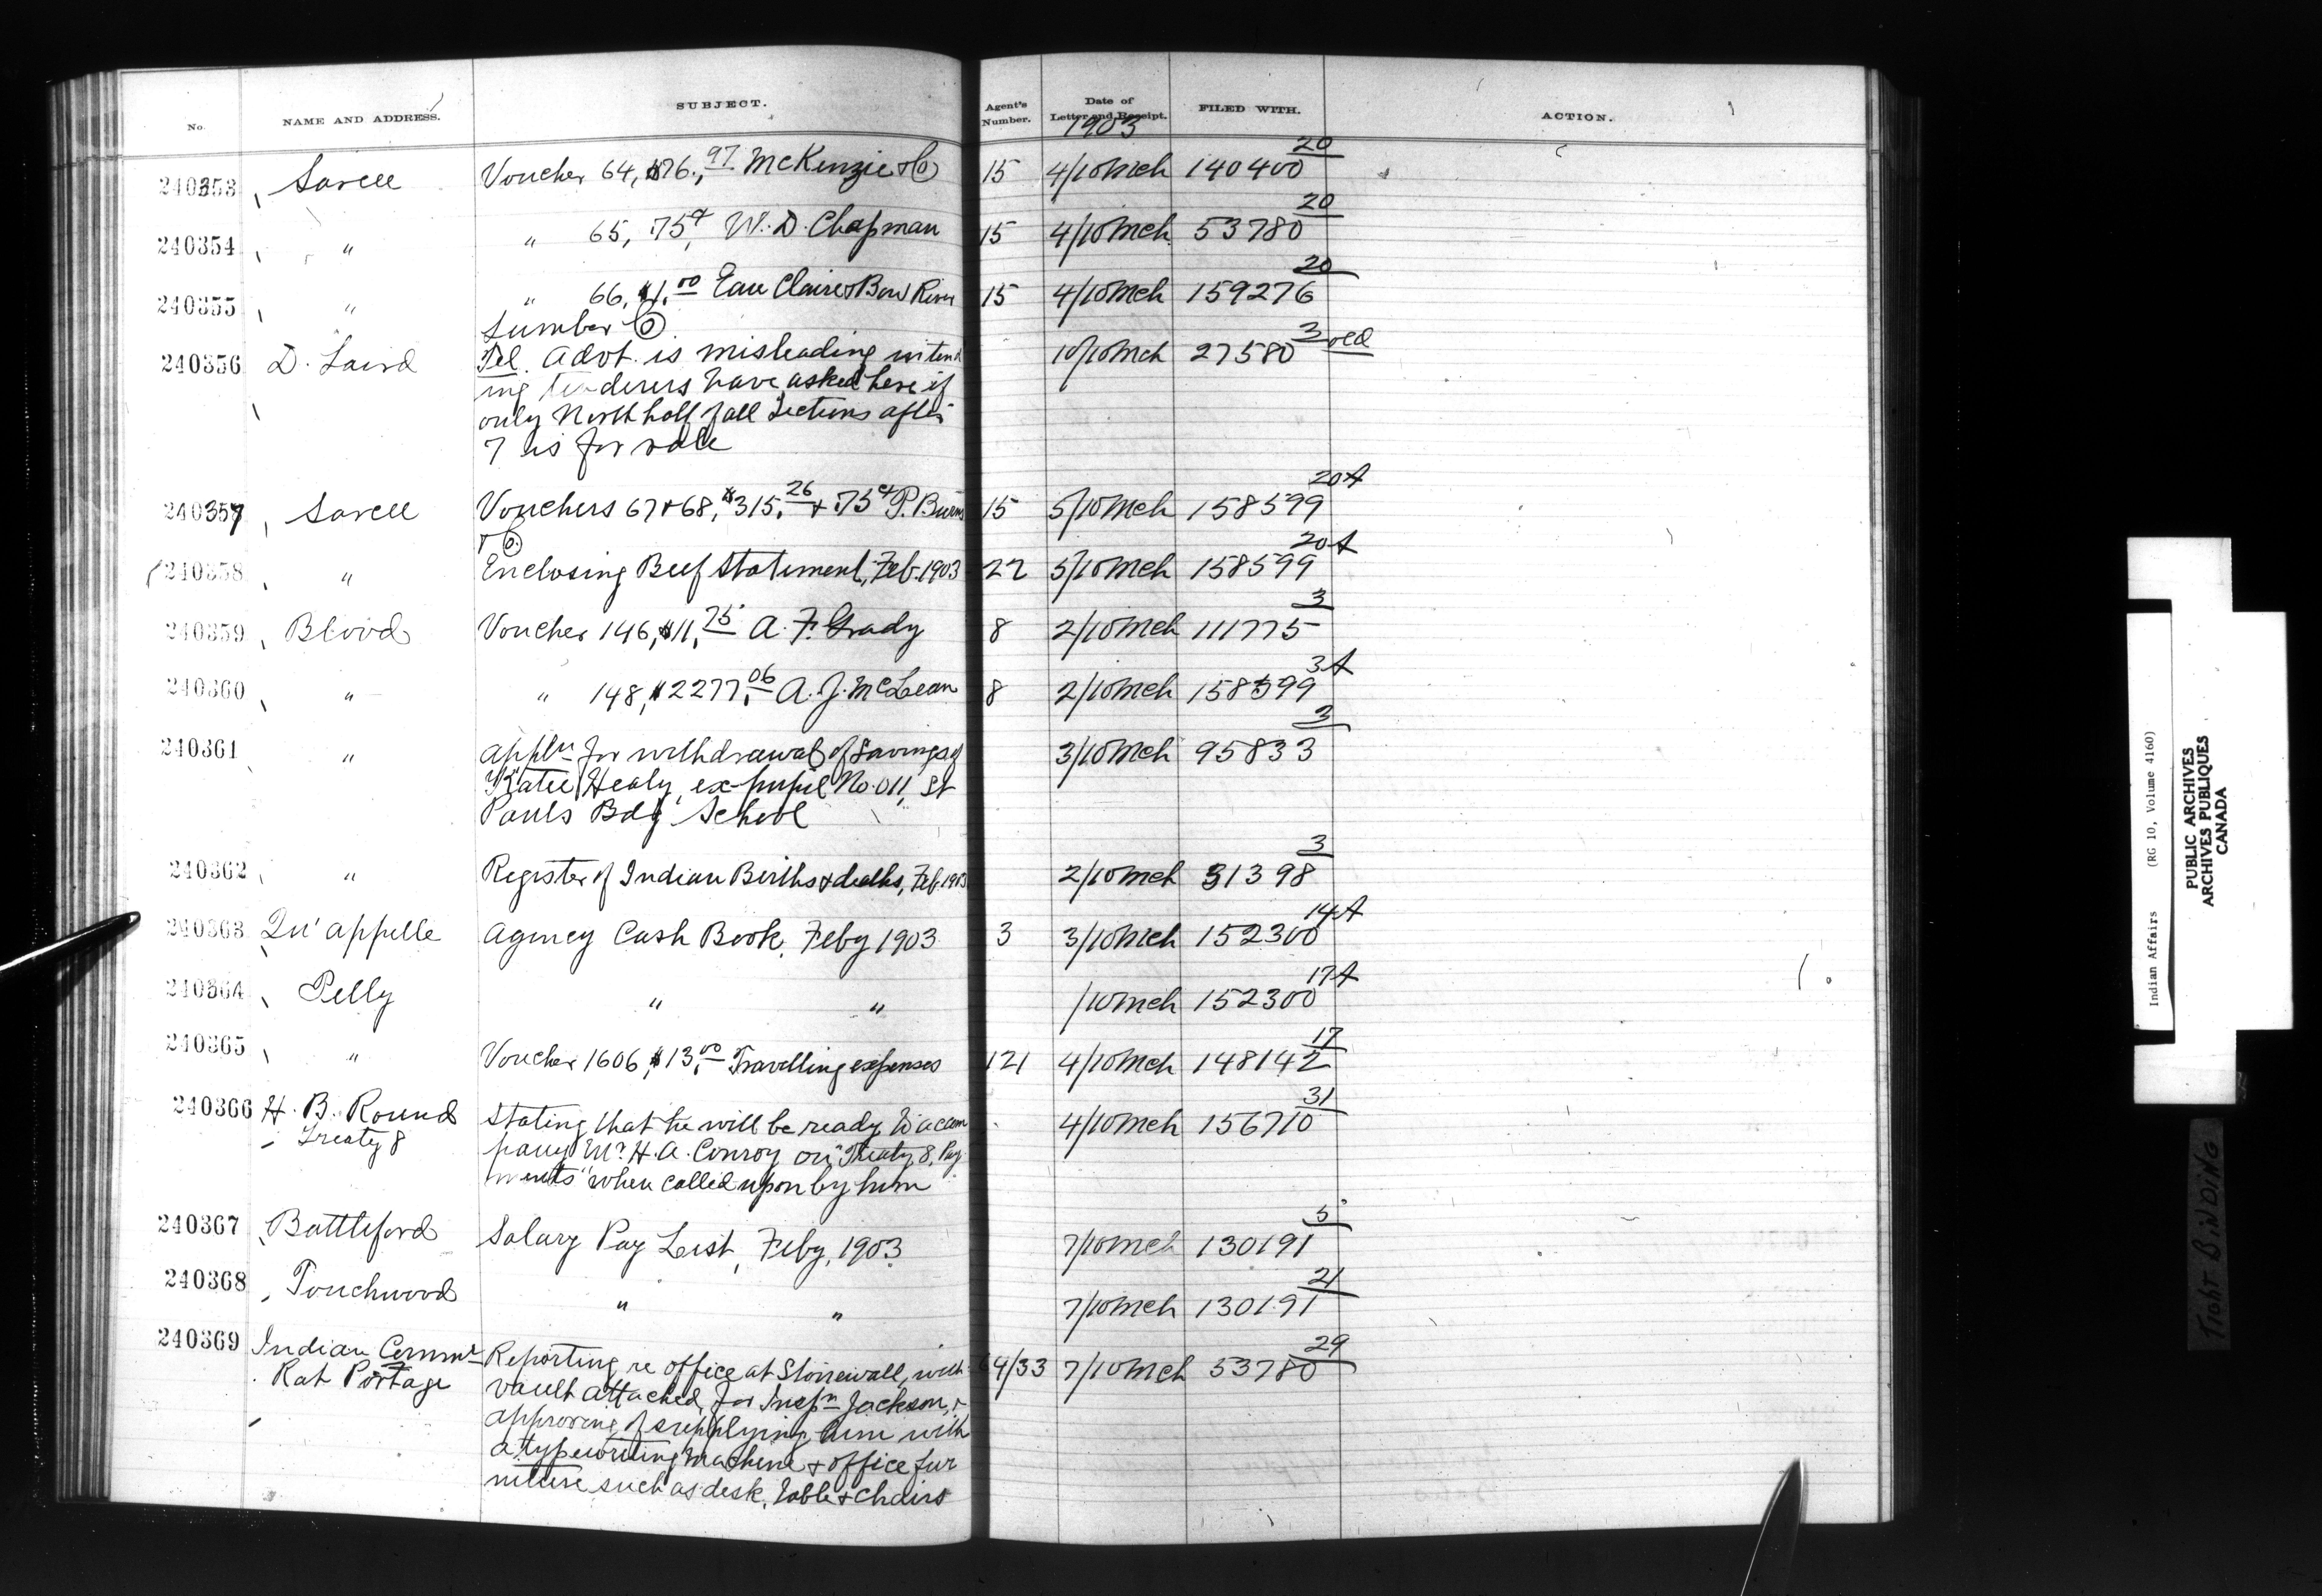 No. NAME AND ADDRESS. SUBJECT. Agent's Number. Date of Letter and Receipt. FILED WITH. ACTION.
1903
240353 Sarcee Voucher 64, $76.97 McKenzie & Co 15 4/10 Mch 140400 20
240354 " " 65, .75¢, W. D. Chapman 15 4/10 Mch 53780 20
240355 " " 66, $1.00 Eau Claire & Bow River 15 4/10 Mch 159276 20
Lumber Co
240356 D. Laird Tel. Advt. is misleading intend 10/10 Mch 27580 3 old
ing tenderers have asked here if
only North half of all Sections after
7 is for sale
240357 Sarcee Vouchers 67 & 68, $315.26 & .75¢ P. Burns 15 5/10 Mch 158599 20A
& Co.
240358 " Enclosing Beef Statement, Feb. 1903 22 5/10 Mch 158599 20A
240359 Blood Voucher 146, $11.75 A. F. Grady 8 2/10 Mch 111775 3
240360 " " 148, $2277.06 A. J. McLean 8 2/10 Mch 158599 3A
240361 " Appln for withdrawal of Savings of 3/10 Mch 95833 3
Katie Healy, ex-pupil No. 011, St
Pauls Bdg School
240362 " Register of Indian Births & deaths, Feb. 1903 2/10 Mch 31398 3
240363 Qu'appelle Agency Cash Book, Feby 1903 3 3/10 Mch 152300 14A
240364 Pelly " " /10 Mch 152300 17A
240365 " Voucher 1606, $13.00 Travelling expenses 121 4/10 Mch 148142 17
240366 H. B. Round Stating that he will be ready to accom 4/10 Mch 156710 31
Treaty 8 pany Mr. H. A. Conroy on "Treaty 8, Pay
ments" when called upon by him
240367 Battleford Salary Pay List, Feby, 1903 7/10 Mch 130191 5
240368 Touchwood " " 7/10 Mch 130191 21
240369 Indian Commr Reporting re office at Stonewall, with 64/33 7/10 Mch 53780 29
Rat Portage vault attached, for Inspr Jackson, &
approving of supplying him with
a typewriting machine & office fur
niture such as desk, table & chairs
Indian Affairs (RG 10, Volume 4160)
PUBLIC ARCHIVES
ARCHIVES PUBLIQUES
CANADA
TIGHT BINDING